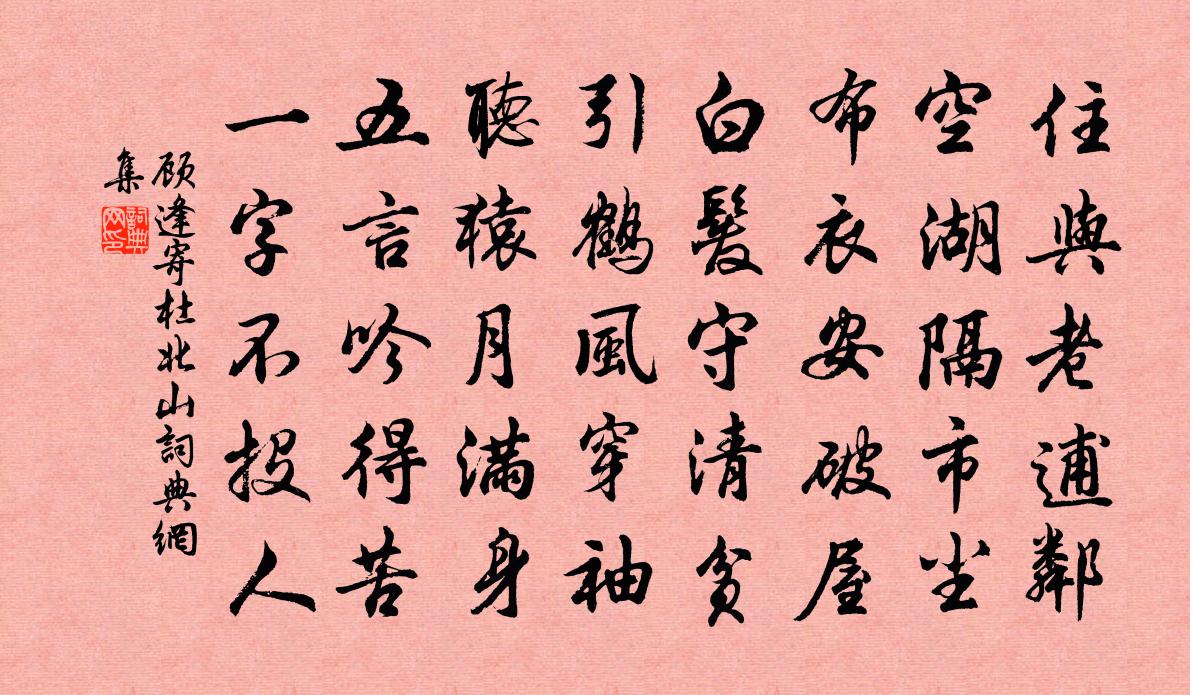 住與老逋鄰
空湖隔市尘
布衣安破屋
白髮守清贫
引鶴風穿袖
聽猿月滿身
五言吟得苦
一字不投人
顾逢寄杜北山詞典網
集
詞典
网印